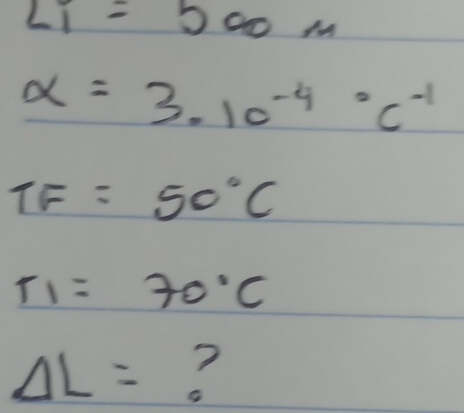 Li = 500 m
α = 3.10⁻⁴ °C⁻¹
TF = 50°C
TI = 70°C
ΔL = ?